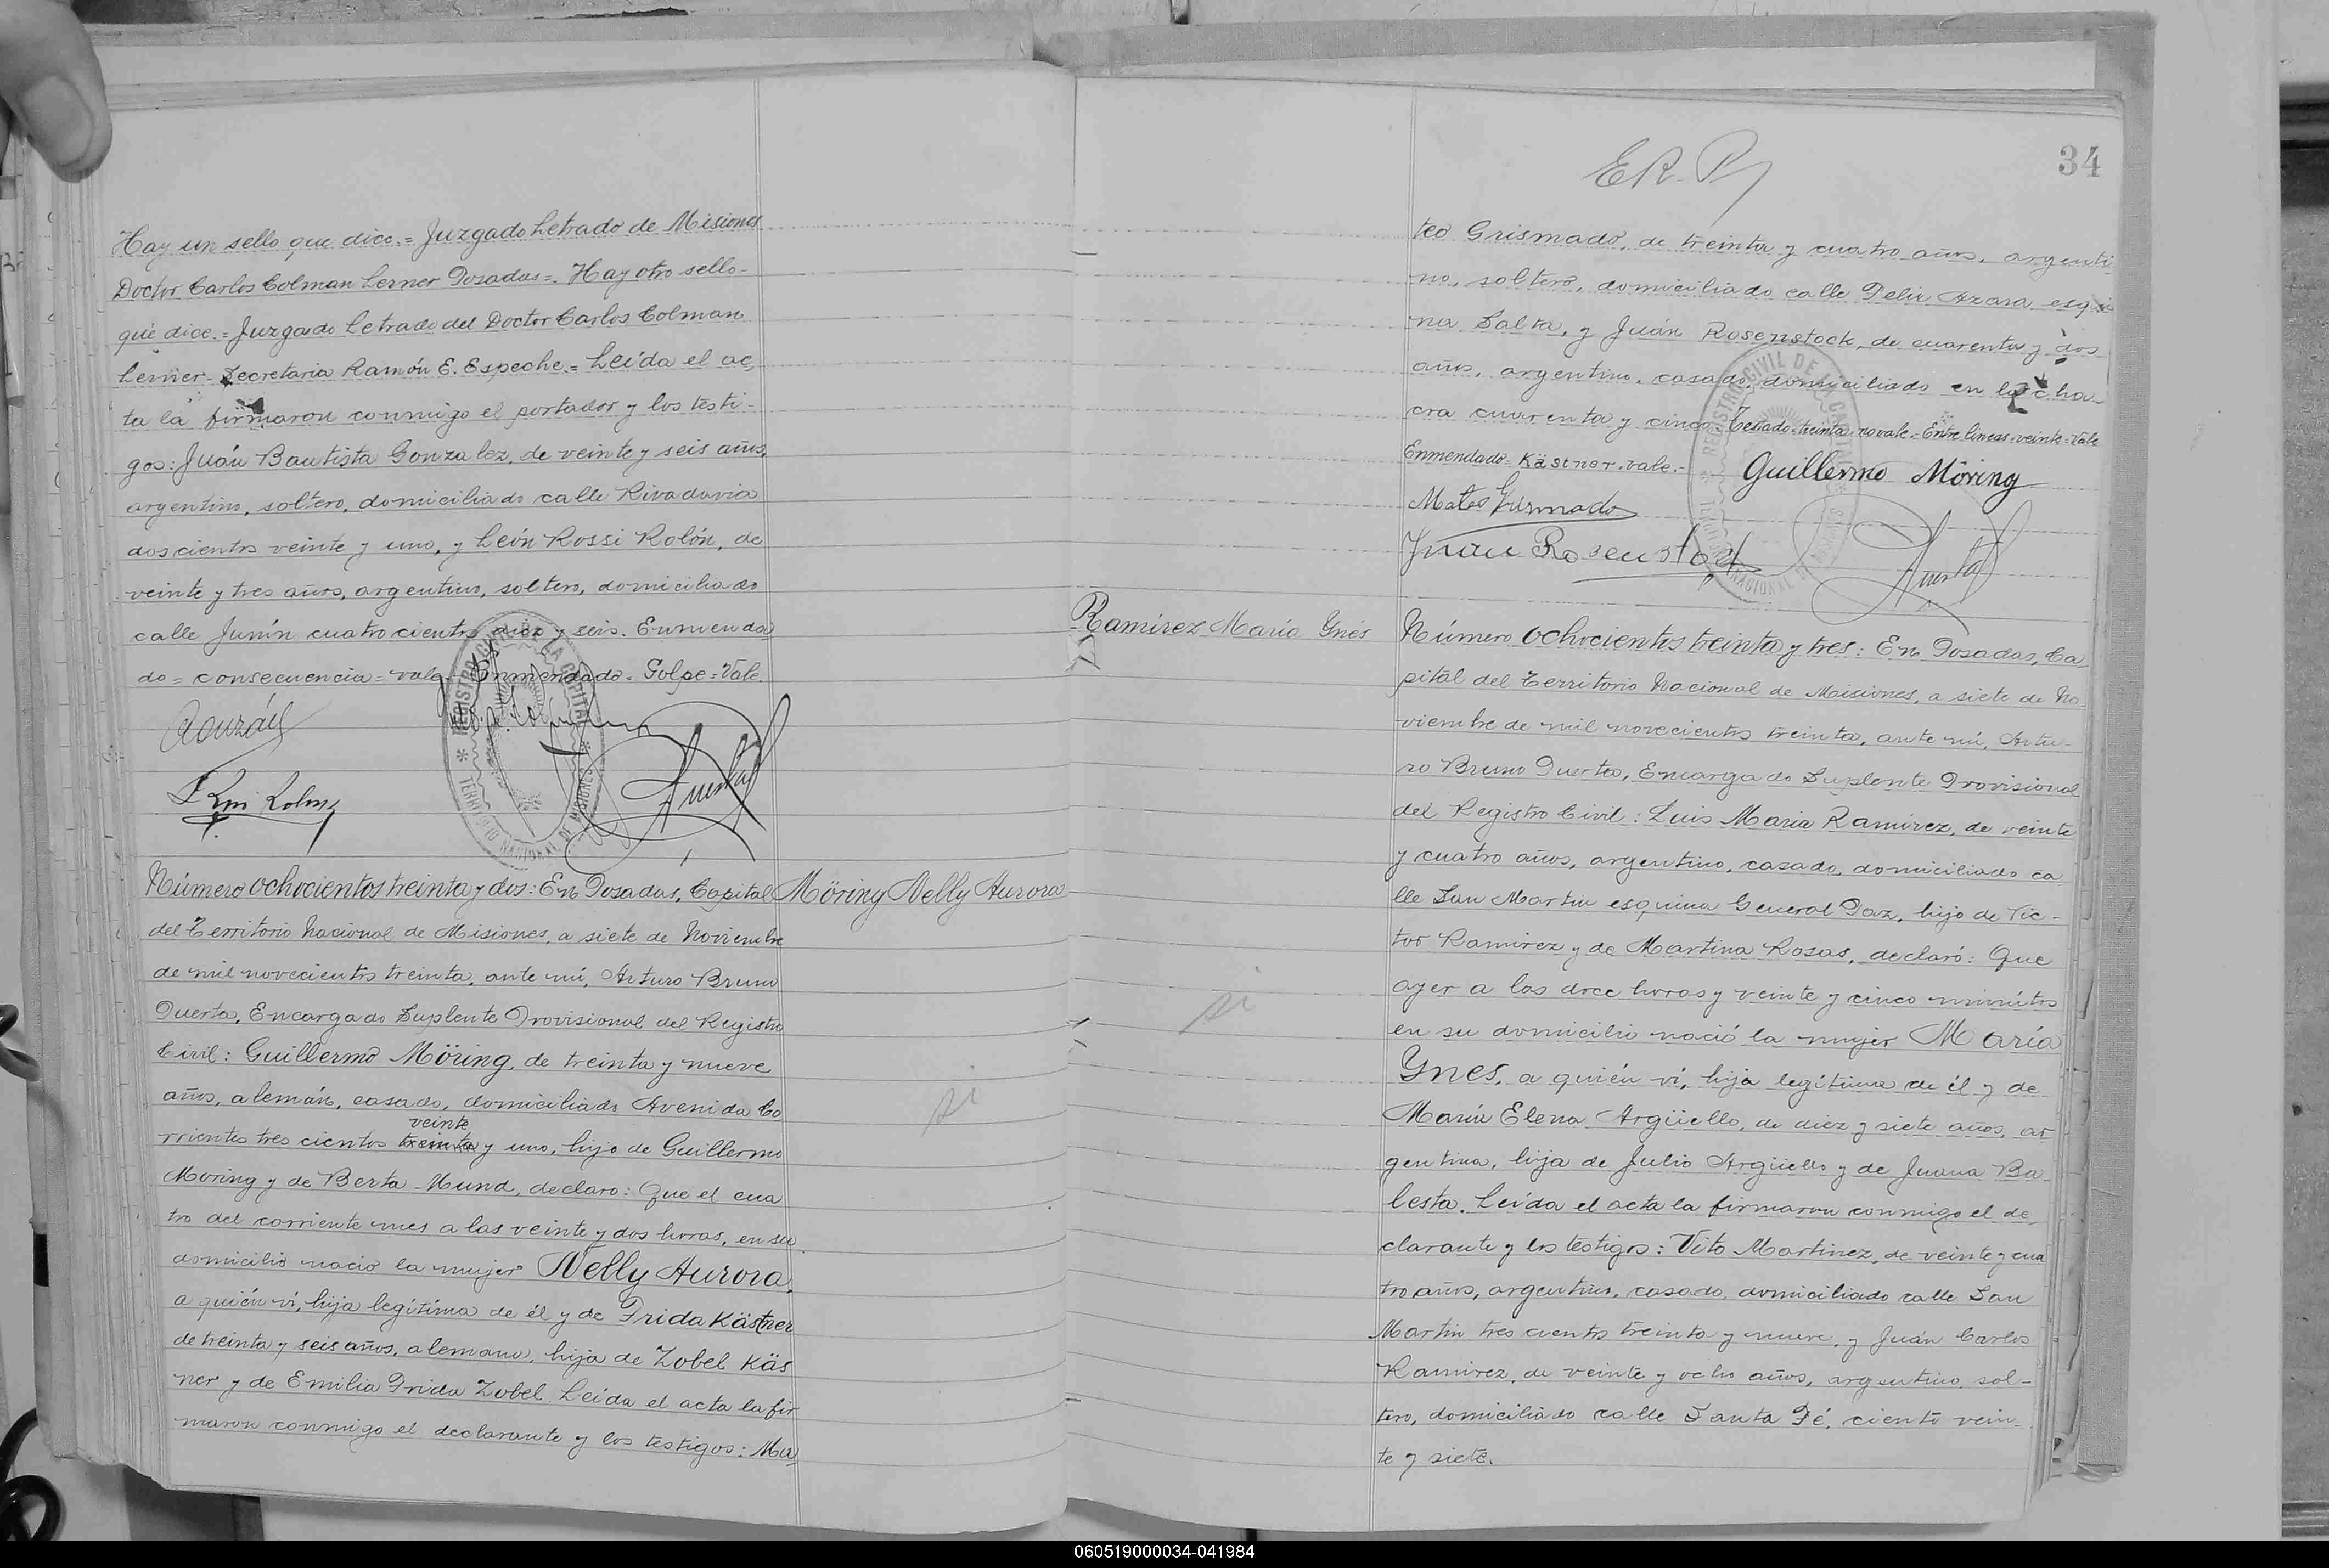 Hay un sello que dice.= Juzgado Letrado de Misiones
Doctor Carlos Colman Lerner Posadas=. Hay otro sello-
que dice.= Juzgado Letrado del Doctor Carlos Colman
Lerner- Secretaria Ramón E. Espeche.= Leída el ac,
ta la firmaron conmigo el portador y los testi-
gos: Juán Bautista Gonzalez, de veinte y seis años,
argentino, soltero, domiciliado calle Rivadavia
doscientos veinte y uno, y León Rossi Rolón, de
veinte y tres años, argentino, soltero, domiciliado
calle Junín cuatrocientos diez y seis. Enmenda
do = consecuencia = vale- Enmendado = Golpe = Vale.
REGISTRO CIVIL DE LA CAPITAL
TERRITORIO NACIONAL DE MISIONES
Número ochocientos treinta y dos: En Posadas, Capital
Möring Nelly Aurora
del Territorio Nacional de Misiones, a siete de Noviembre
de mil novecientos treinta, ante mí, Arturo Bruno
Puerta, Encargado Suplente Provisional del Registro
Civil: Guillermo Möring, de treinta y nueve
años, alemán, casado, domiciliado Avenida Co
veinte
rrientes tres cientos treinta y uno, hijo de Guillermo
Moring y de Berta Mund, declaro: Que el cua
tro del corriente mes a las veinte y dos horas, en su
domicilio nació la mujer Nelly Aurora,
a quién ví, hija legítima de él y de Frida Kästner
de treinta y seis años, alemana, hija de Zobel Käs
ner y de Emilia Frida Zobel. Leída el acta la fir
maron conmigo el declarante y los testigos: Ma
si
34
E R. P
teo Grismado, de treinta y cuatro años, argenti
no, soltero, domiciliado calle Felix Azara esqui
na Salta, y Juán Rosenstock, de cuarenta y dos
años, argentino, casado, domiciliado en la cha-
cra cuarenta y cinco. Testado = treinta = no vale = Entre lineas = veinte = Vale
Enmendado = Kästner = vale.-
Guillermo Möring
Mateo Grismado
Juan Rosenstock
REGISTRO CIVIL DE LA CAPITAL
TERRITORIO NACIONAL DE MISIONES
Ramirez María Ynés
Número ochocientos treinta y tres: En Posadas, Ca
pital del Territorio Nacional de Misiones, a siete de No-
viembre de mil novecientos treinta, ante mí, Artu-
ro Bruno Puerta, Encargado Suplente Provisional
del Registro Civil: Luis Maria Ramirez, de veinte
y cuatro años, argentino, casado, domiciliado ca
lle San Martin esquina General Paz, hijo de Vic-
tor Ramirez y de Martina Rosas, declaró: Que
ayer a las doce horas y veinte y cinco minútos
en su domicilio nació la mujer María
Ynes, a quién ví, hija legítima de él y de
María Elena Argüello, de diez y siete años, ar
gentina, hija de Julio Argüello y de Juana Ba
lesta. Leída el acta la firmaron conmigo el de,
clarante y los testigos: Vito Martinez, de veinte y cua
tro años, argentino, casado, domiciliado calle San
Martin tres cientos treinta y nueve, y Juán Carlos
Ramirez, de veinte y ocho años, argentino, sol-
tero, domiciliado calle Santa Fé, ciento vein-
te y siete.
si
060519000034-041984